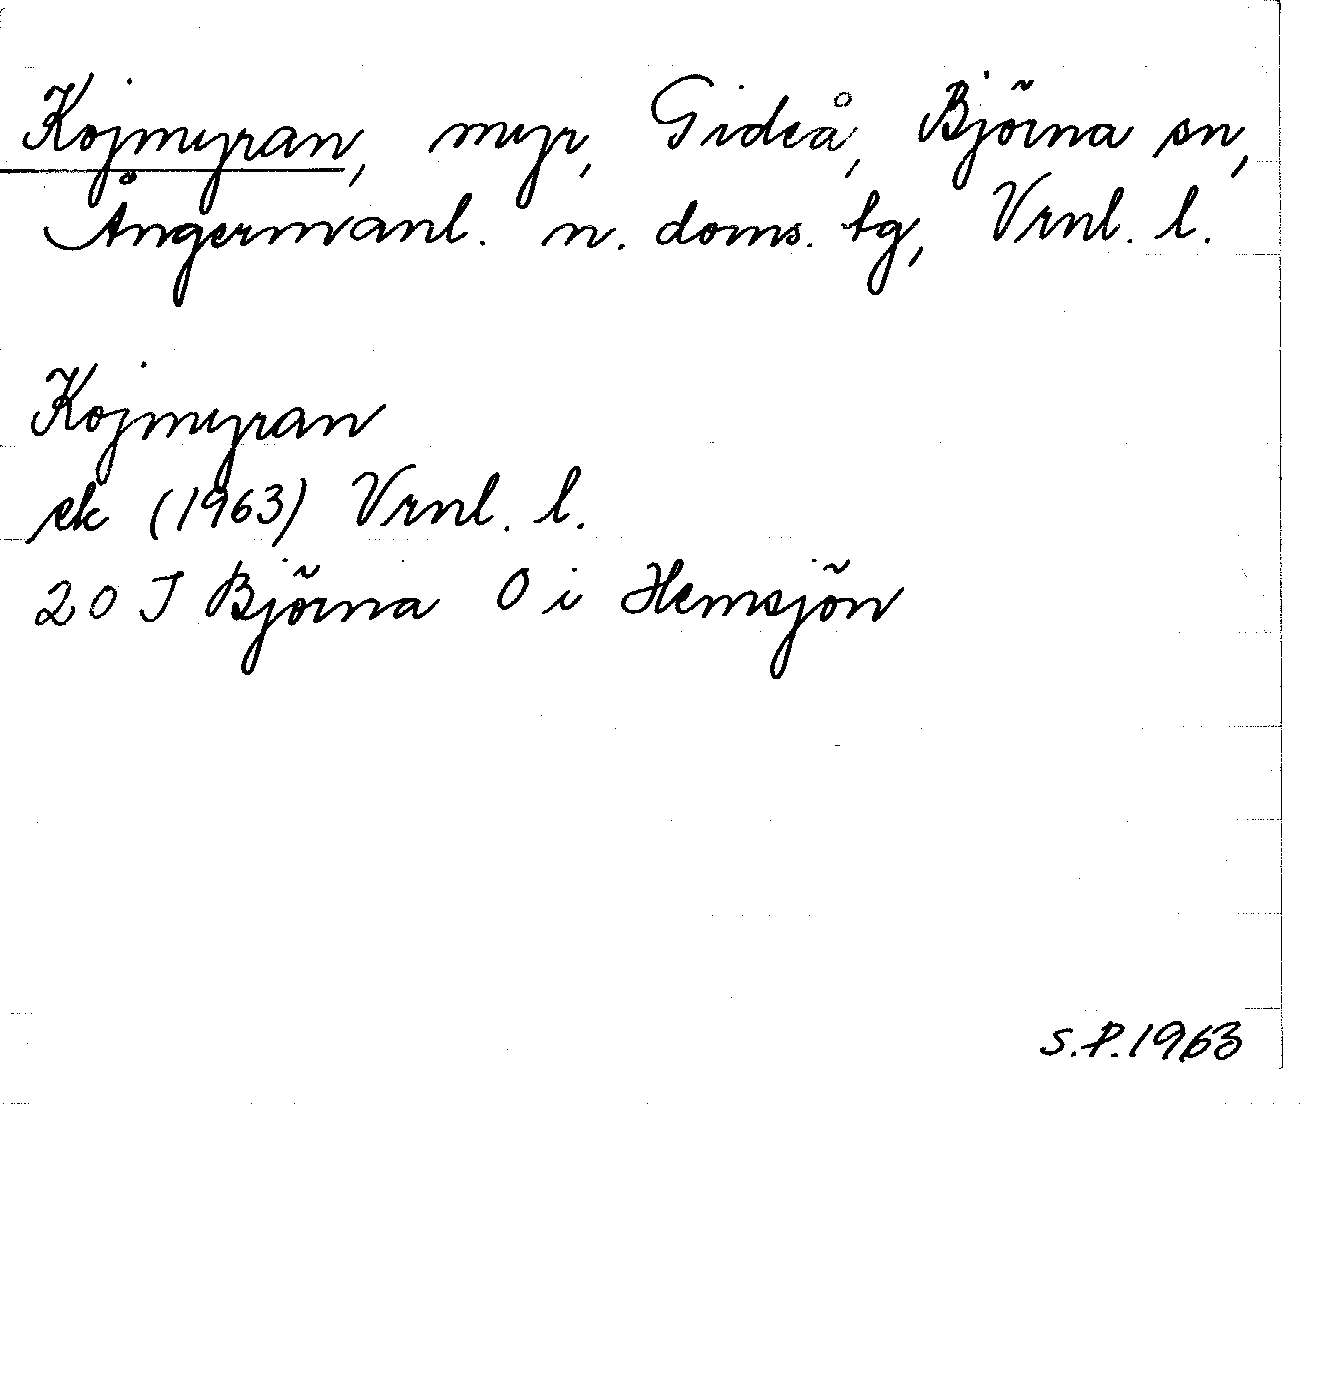 Kojmyran, myr, Gideå, Björna sn,
Ångermanl. n. doms. tg, Vrnl. l.
Kojmyran
ek (1963) Vrnl. l.
20 J Björna O i Hemsjön
S.P. 1963